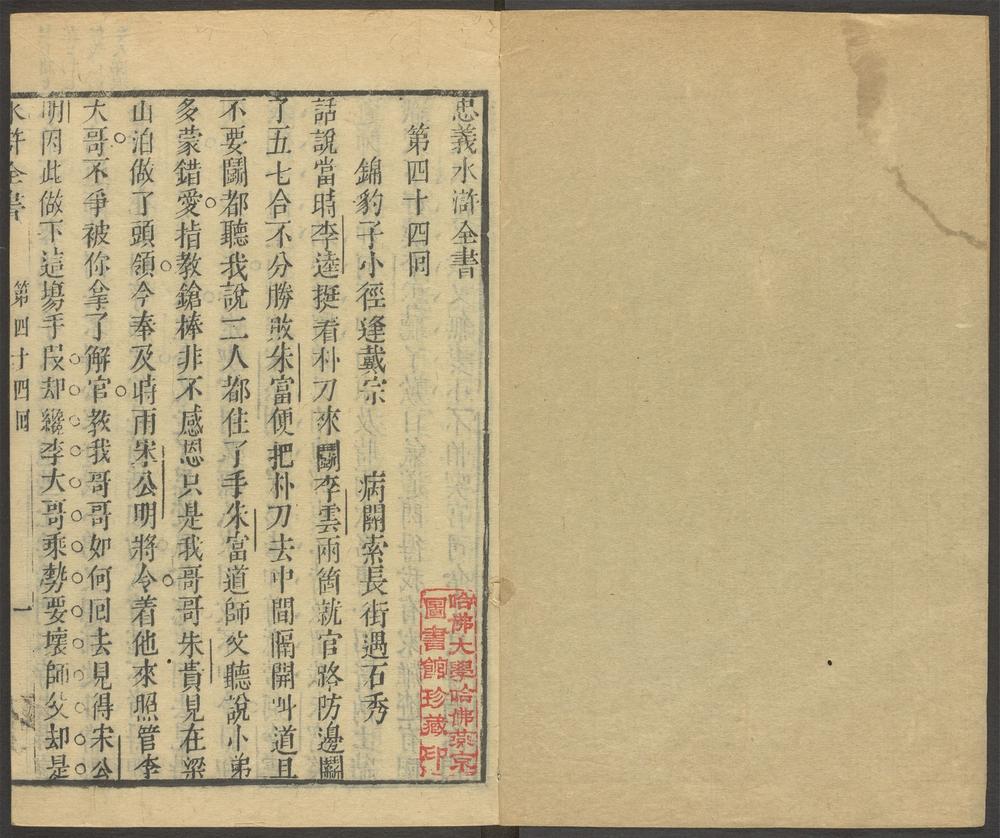 忠義水滸全書
第四十四囘
錦豹子小徑逢戴宗　病關索長街遇石秀
話說當時李逵挺着朴刀來鬭李雲兩箇就官路防邊鬭
了五七合不分勝敗朱富便把朴刀去中間隔開叫道且
不要鬭都聽我說二人都住了手朱富道師父聽說小弟
多蒙錯愛指教鎗棒非不感恩只是我哥哥朱貴見在梁
山泊做了頭領今奉及時雨宋公明將令着他來照管李
大哥不爭被你拿了解官教我哥哥如何囘去見得宋公
明因此做下這塲手段却纔李大哥乘勢要壞師父却是
水滸全書　第四十四囘　一
哈佛大學哈佛燕京
圖書館珍藏印